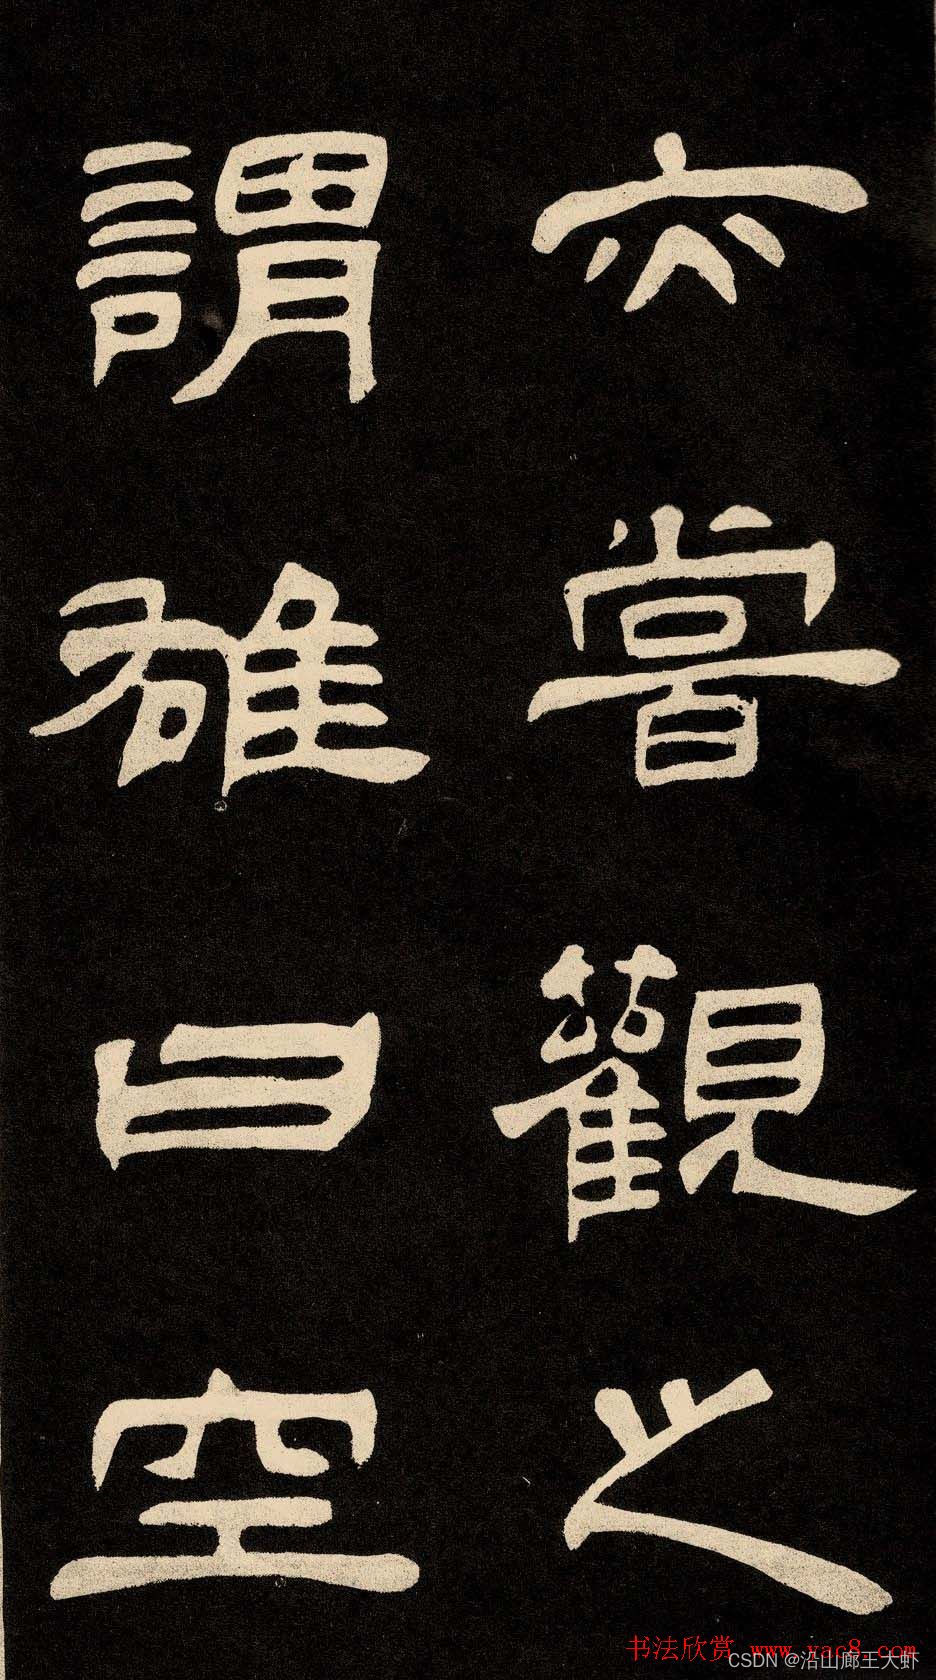 亦嘗觀之
謂雄曰空
书法欣赏 www.yac8.com
CSDN @沿山廊王大虾